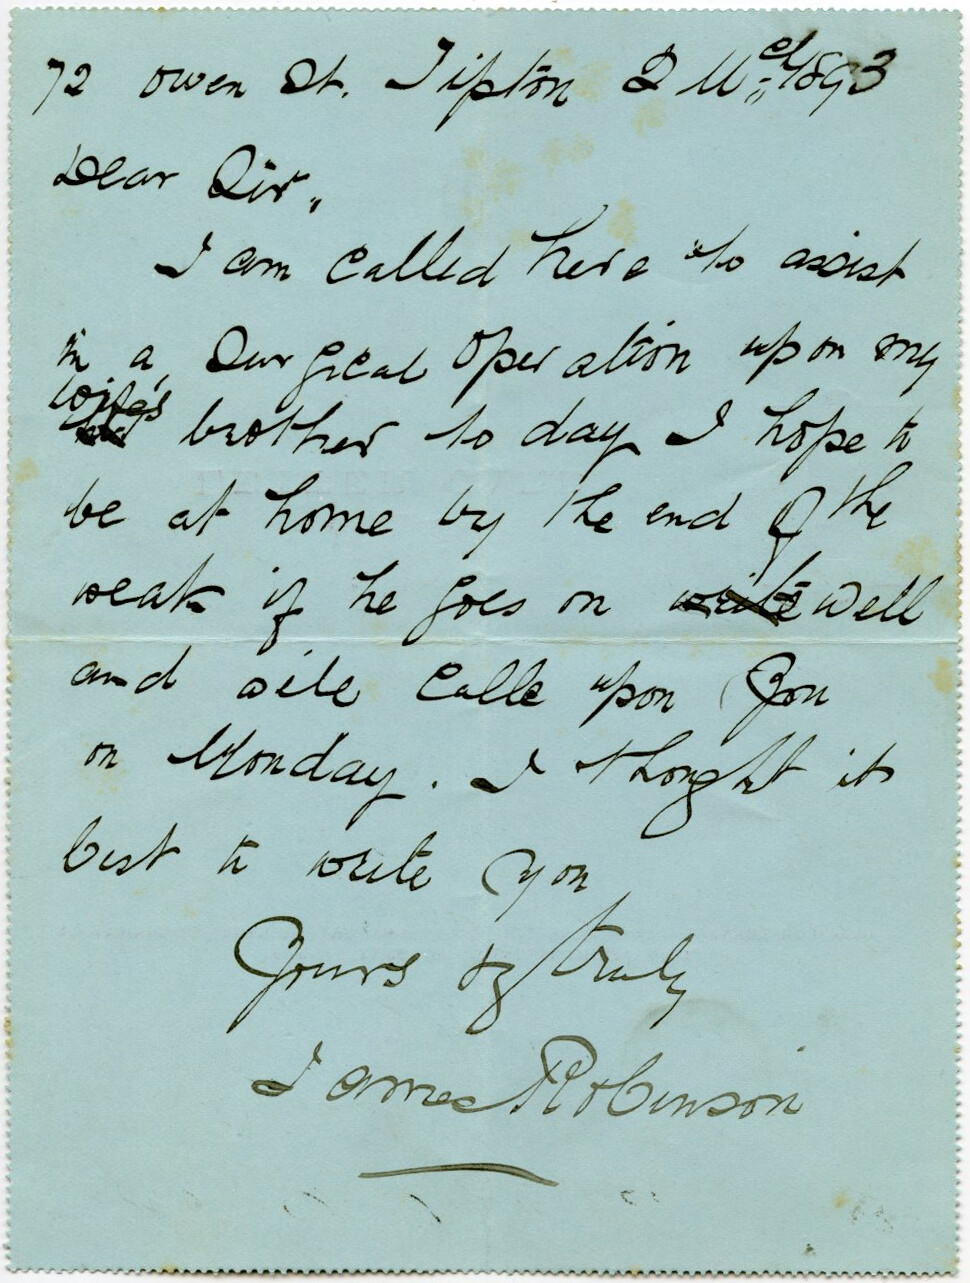 72 Owen St. Tipton 2 Mch 1893
Dear Sir,
I am called here to assist
in a, Surgical Operation upon my
wife's
brother to day I hope to
be at home by the end of the
weak if he goes on write well
and will calle upon you
on Monday. I thought it
best to write you
Yours truly
James Robinson